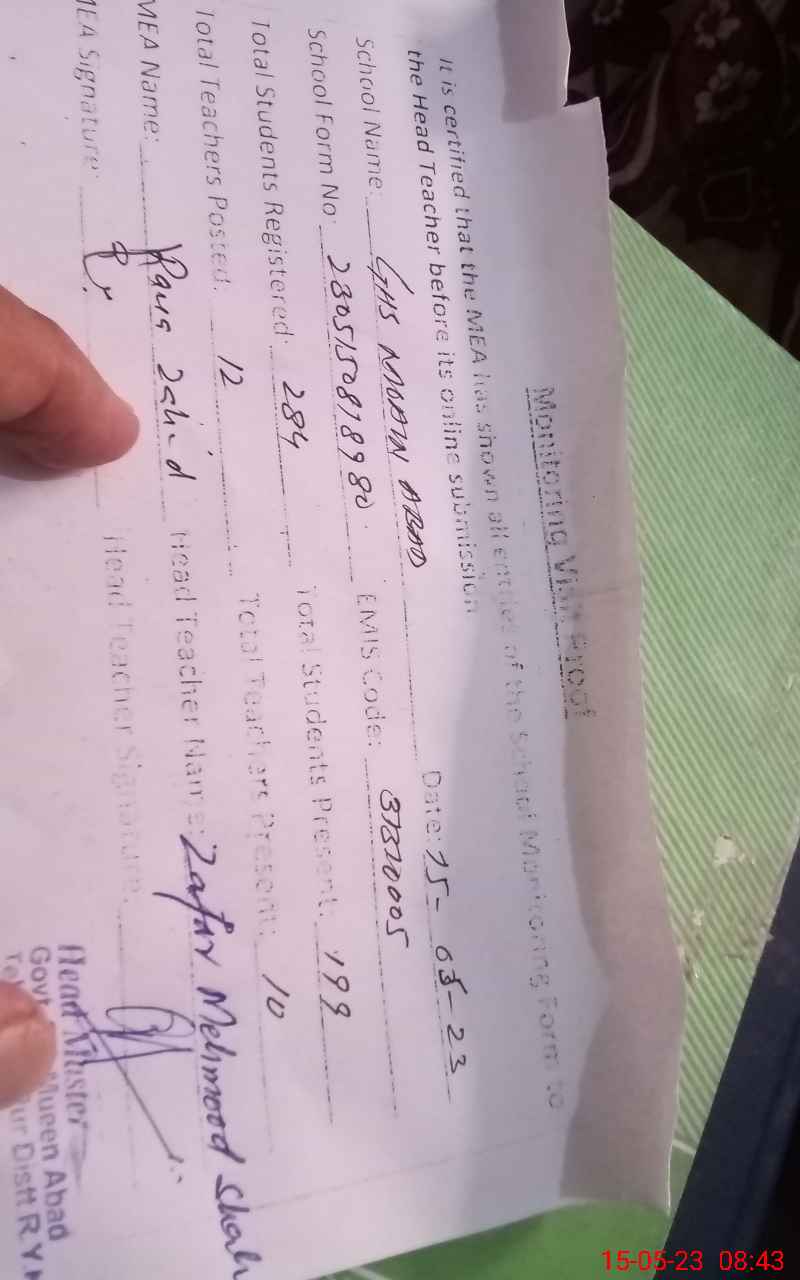 Monitoring Visit Proof
It is certified that the MEA has shown all entries of the School Monitoring Form to
the Head Teacher before its online submission
Date: 15-05-23
School Name: GHS MUEEN ABAD
School Form No: 2305150818980. EMIS Code: 31320005
Total Students Registered: 284 Total Students Present: 199
Total Teachers Posted: 12 Total Teachers Present: 10
MEA Name: Zahid Head Teacher Name: Zafar Mehmood Shah
MEA Signature: Head Teacher Signature:
Head Master
Govt. Mueen Abad
ur Distt R.Y.
15-05-23 08:43